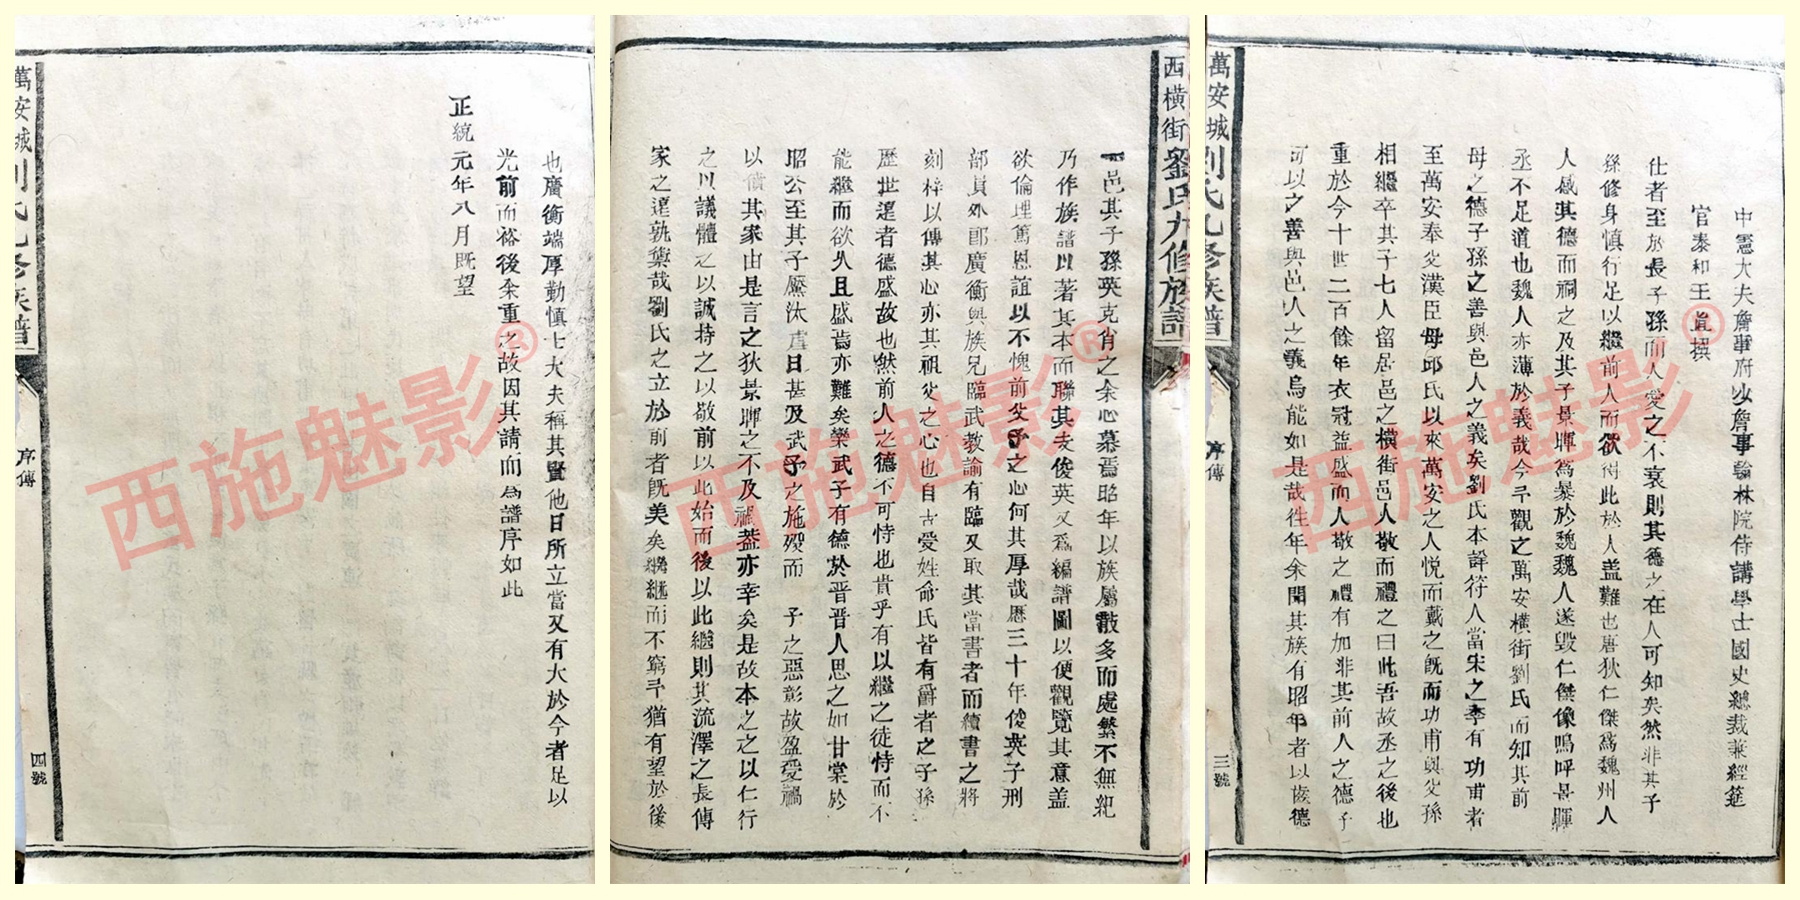 中憲大夫詹事府少詹事翰林院侍講學士國史總裁兼經筵
官泰和王直撰
仕者至於長子孫而人愛之不衰則其德之在人可知矣然非其子
孫修身慎行足以繼前人而欲得此於人蓋難也唐狄仁傑爲魏州人
人感其德而祠之及其子景暉爲暴於魏魏人遂毀仁傑像嗚呼景暉
丞不足道也魏人亦薄於義哉今予觀之萬安橫街劉氏而知其前
母之德子孫之善與邑人之義矣劉氏本諱符人當宋之季有功甫者
至萬安奉父漢臣母邱氏以來萬安之人悅而戴之旣而功甫與父孫
相繼卒其子七人留居邑之橫街邑人敬而禮之曰此吾故丞之後也
重於今十世二百餘年衣冠益盛而人敬之禮有加非其前人之德子
可以之善與邑人之義烏能如是哉徃年余聞其族有昭年者以齒德
萬安城劉氏九修族譜
序傳
三號
西橫街劉氏九修族譜
一邑其子孫英克肖之余心慕焉昭年以族屬散多而處繁不無紀
乃作族譜以著其本而聯其支俊英又爲編譜圖以便觀覽其意蓋
欲倫理篤恩誼以不愧前父子之心何其厚哉歷三十年俊英子刑
部員外郎廣衡與族兄臨武教諭有臨又取其當書者而續書之將
刻梓以傳其心亦其祖父之心也自古受姓命氏皆有爵者之子孫
歷世遠者德盛故也然前人之德不可恃也貴乎有以繼之徒恃而不
能繼而欲久且盛焉亦難矣欒武子有德於晉晉人思之如甘棠於
昭公至其子黶汰虐日甚及武子之施歿而 子之惡彰故盈受禍
以僨其家由是言之狄景暉之不及禍葢亦幸矣是故本之之以仁行
之以議體之以誠持之以敬前以此始而後以此繼則其流澤之長傳
家之遠孰禦哉劉氏之立於前者旣美矣繩繼而不窮予猶有望於後
也廣衡端厚勤慎士大夫稱其賢他日所立當又有大於今者足以
光前而裕後余重之故因其請而爲譜序如此
正統元年八月既望
萬安城劉氏九修族譜
序傳
四號
西施魅影®
西施魅影®
西施魅影®